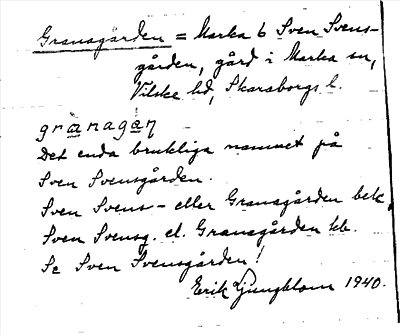 Granagården = Marka 6 Sven Svens-
gården, gård i Marka sn,
Vilske hd, Skaraborgs l.
granagaɳ
Det enda brukliga namnet på
Sven Svensgården.
Sven Svens- eller Granagården bek.
Sven Svensg. el. Granagården kb.
Se Sven Svensgården!
Erik Ljungblom 1940.